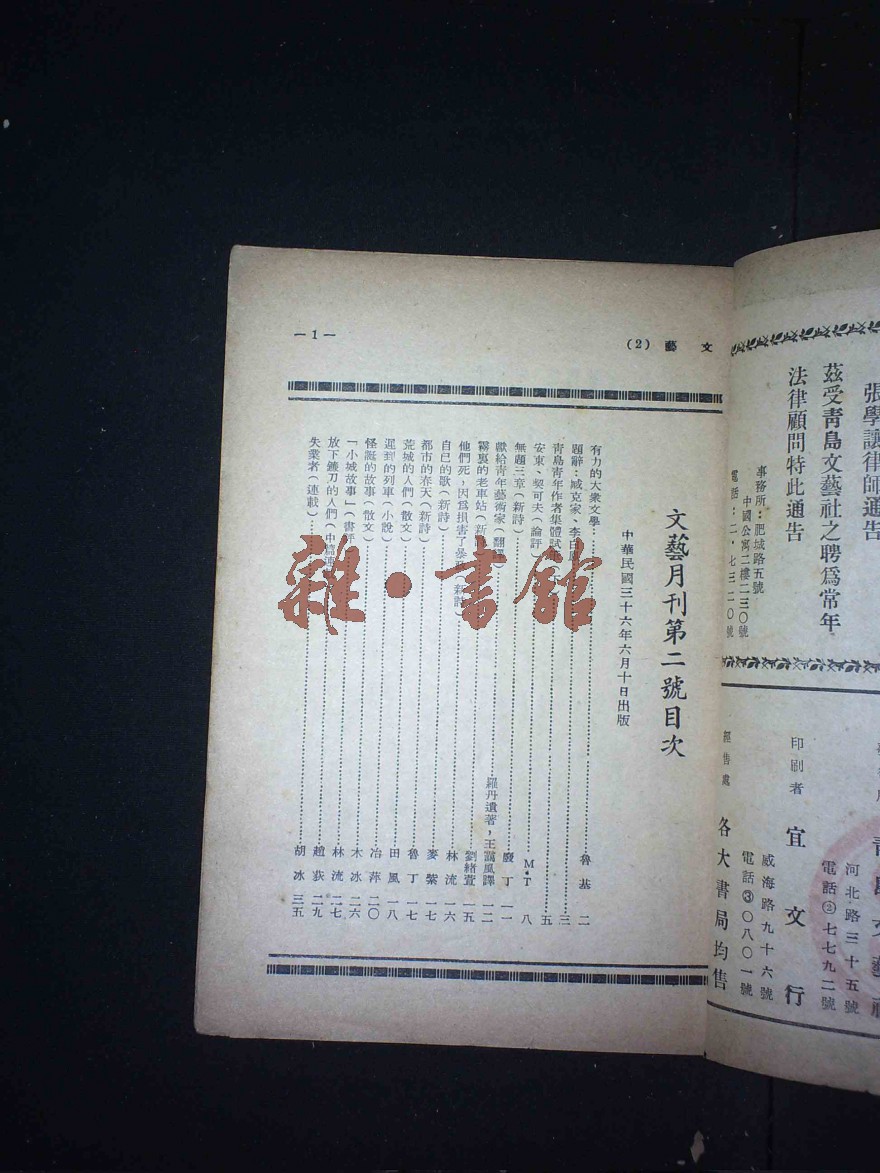 文 藝 (2)
—1—
文藝月刊第二號目次
中華民國三十六年六月十日出版
有力的大衆文學 魯基 二
題辭：臧克家、李白 三
青島青年作者集體試 五
安東、契可夫（論評） M·T 八
無題三章（新詩） 廢丁 一一
獻給青年藝術家（翻譯） 羅丹遺著，王藹風譯 一二
霧裏的老車站（新 劉緒萱 一五
他們死，因爲損害了暴 （新詩） 林流 一六
自己的歌（新詩） 麥紫 一七
都市的春天（新詩） 魯丁 一七
荒城的人們（散文） 田風 一八
遲到的列車（小說） 冶萍 二〇
怪誕的故事（散文） 木冰 二六
「小城故事」（書評 林流 二七
放下鐮刀的人們（中篇連 趙荻 二九
失業者（連載） 胡冰 三五
雜·書館
張學讓律師通告
茲受青島文藝社之聘爲常年
法律顧問特此通告
事務所：肥城路五號
中國公寓二樓二三〇號
電話：二·七三二〇號
青島文藝社
河北路三十五號
電話②七七九二號
印刷者 宜文行
威海路九十六號
電話③〇八〇一號
經售處 各大書局均售